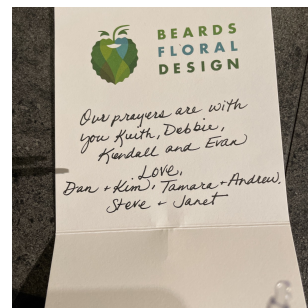 BEARDS
FLORAL
DESIGN
Our prayers are with
you Keith, Debbie,
Kendall and Evan
Love,
Dan + Kim, Tamara + Andrew,
Steve + Janet